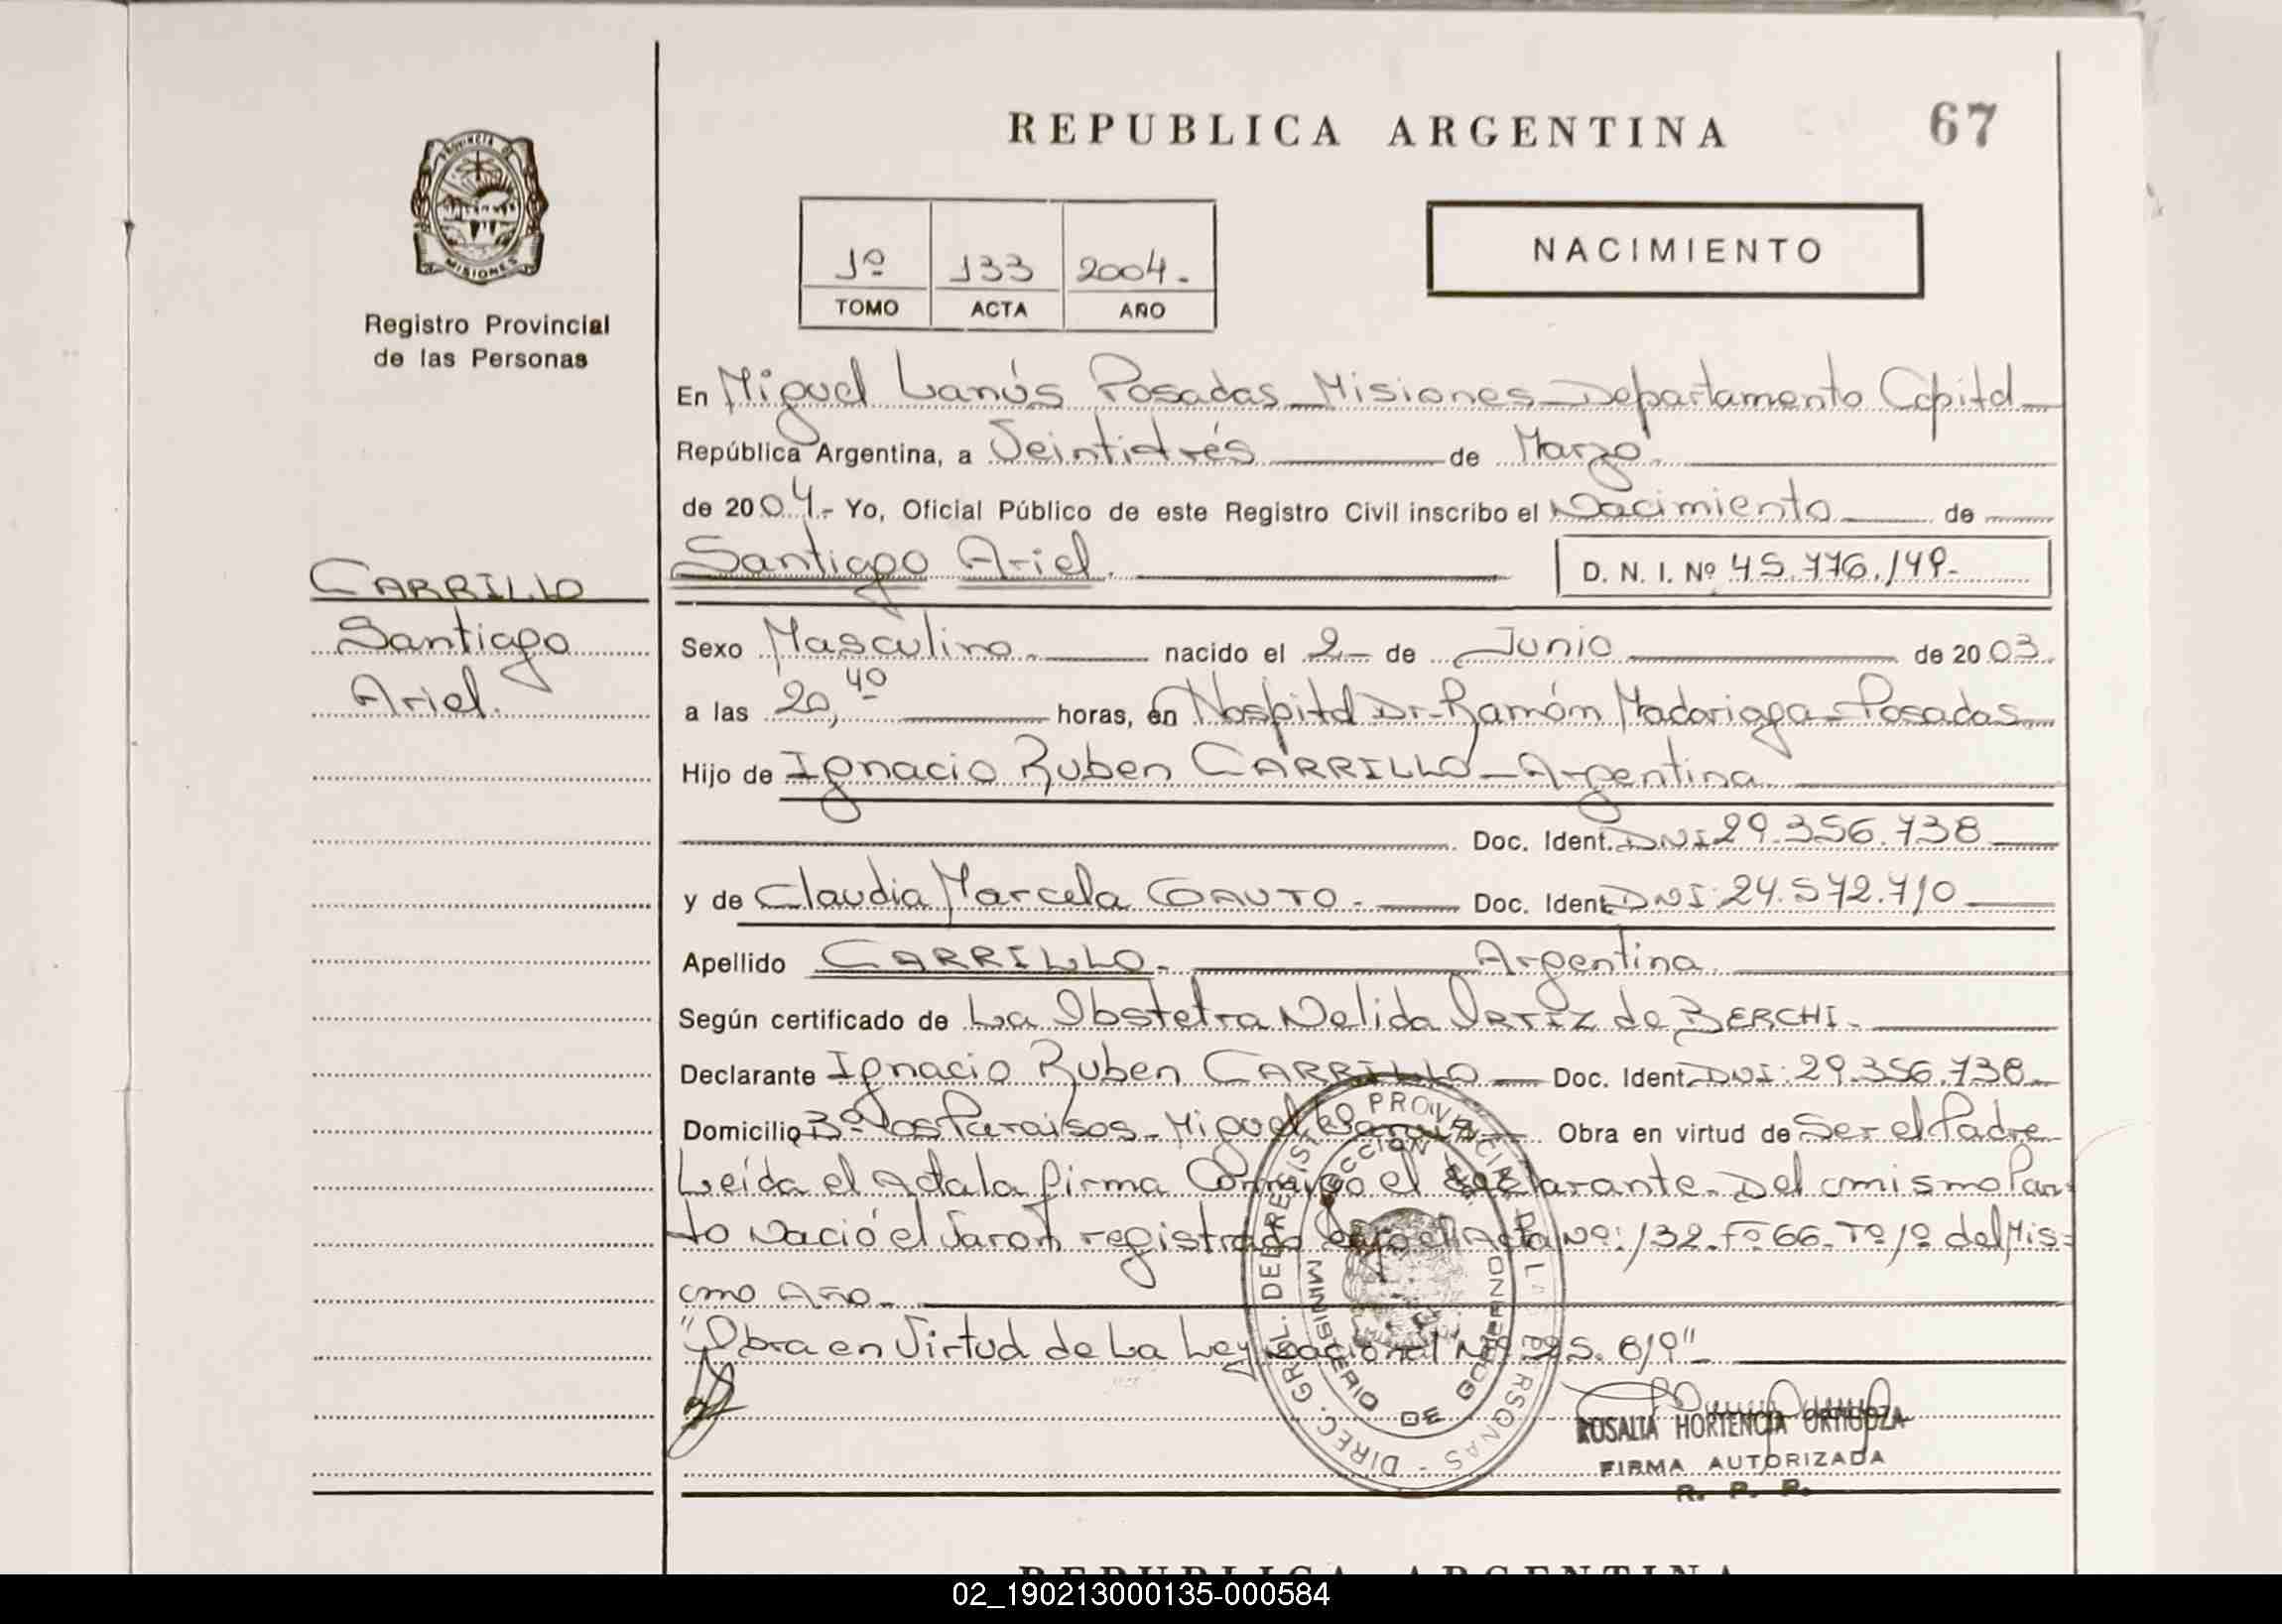 REPUBLICA ARGENTINA
67
PROVINCIA DE
MISIONES
Registro Provincial
de las Personas
1º 133 2004.-
TOMO ACTA AÑO
NACIMIENTO
En Miguel Lanús Posadas - Misiones - Departamento Capital -
República Argentina, a Veintitrés de Marzo
de 2004.- Yo, Oficial Público de este Registro Civil inscribo el Nacimiento de
CARRILLO
Santiago
Ariel.
Santiago Ariel. D. N. I. Nº 45.776.149-
Sexo Masculino.- nacido el 2- de Junio de 2003.
a las 20,40 horas, en Hospital Dr. Ramón Madariaga - Posadas
Hijo de Ignacio Ruben CARRILLO - Argentina
Doc. Ident. DNI 29.356.738
y de Claudia Marcela GAUTO.- Doc. Ident. DNI: 24.572.710
Apellido CARRILLO.- Argentina
Según certificado de La Obstetra Nelida ORTIZ de BERCHI.-
Declarante Ignacio Ruben CARRILLO - Doc. Ident. DNI: 29.356.738
Domicilio Bº Los Paraisos - Miguel Lanús - Obra en virtud de Ser el Padre
Leída el Acta la firma Conmigo el declarante. Del mismo Par-
to Nació el Varon registrado bajo el Acta Nº: 132. Fº 66. Tº 1º del Mis=
mo Año.-
"Obra en Virtud de La Ley Nacional Nº 25.819"
DIREC. GRL. DEL REGISTRO PROVINCIAL DE LAS PERSONAS -
MINISTERIO DE GOBIERNO
ROSALIA HORTENCIA ORTIGOZA
FIRMA AUTORIZADA
R. P. P.
REPUBLICA ARGENTINA
02_190213000135-000584